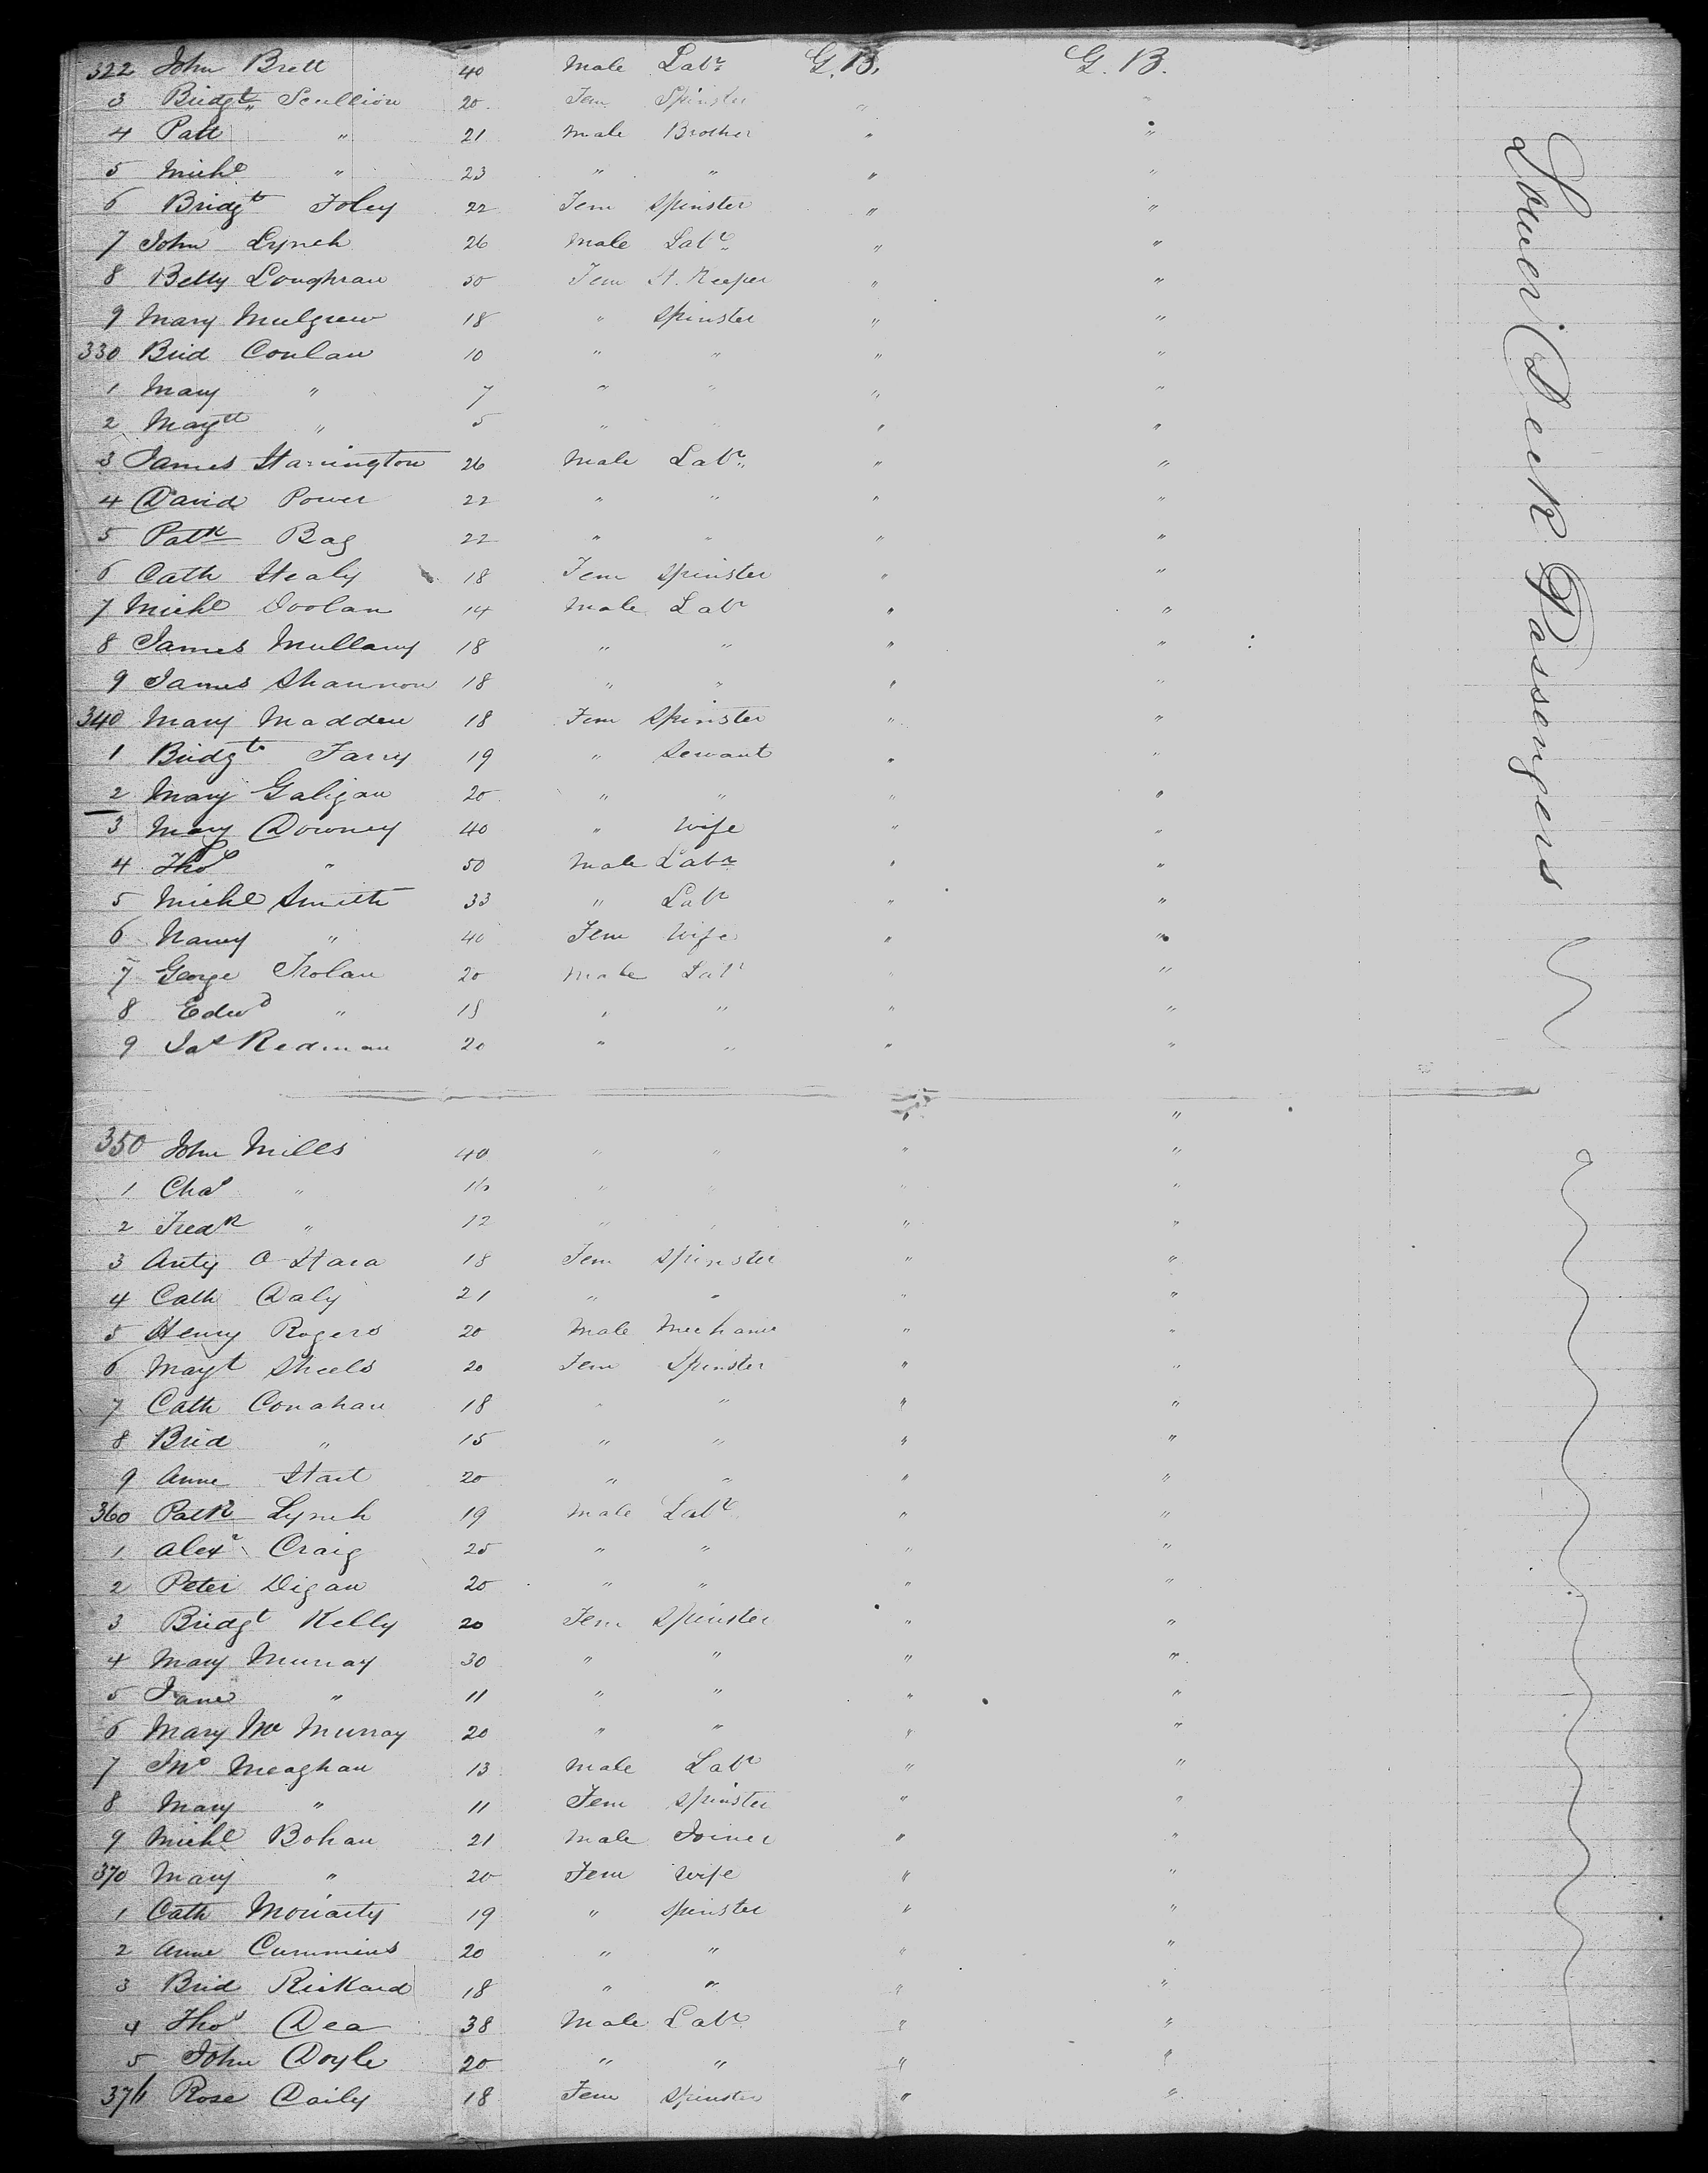 322 John Brett 40 Male Labr G.B. G.B.
3 Bridgt Scullion 20 Fem Spinster " "
4 Patt " 21 Male Brother " "
5 Michl " 23 " " " "
6 Bridgt Foley 22 Fem Spinster " "
7 John Lynch 26 Male Labr " "
8 Betty Loughran 30 Fem H. Keeper " "
9 Mary Mulgrew 18 " Spinster " "
330 Brid Conlan 10 " " " "
1 Mary " 7 " " " "
2 Margtt " 5 " " " "
3 James Harrington 26 Male Labr " "
4 David Power 22 " " " "
5 Patk Bag 22 " " " "
6 Cath Healy 18 Fem Spinster " "
7 Michl Doolan 14 Male Labr " "
8 James Mullany 18 " " " "
9 James Shannon 18 " " " "
340 Mary Madden 18 Fem Spinster " "
1 Bridgt Farry 19 " Servant " "
2 Mary Galigan 20 " " " "
3 Mary Downey 40 " Wife " "
4 Thos " 50 Male Labr " "
5 Michl Smith 33 " Labr " "
6 Nancy " 40 Fem Wife " "
7 George Trolan 20 Male Labr " "
8 Edwd " 18 " " " "
9 Jas Redman 20 " " " "
"
350 John Mills 40 " " " "
1 Chas " 16 " " " "
2 Fredk " 12 " " " "
3 Anty O Hara 18 Fem Spinster " "
4 Cath Daly 21 " " " "
5 Henry Rogers 20 Male Mechanic " "
6 Magt Sheels 20 Fem Spinster " "
7 Cath Conahan 18 " " " "
8 Brid " 15 " " " "
9 Anne Hart 20 " " " "
360 Patk Lynch 19 Male Labr " "
1 Alexr Craig 25 " " " "
2 Peter Digan 20 " " " "
3 Bridgt Kelly 20 Fem Spinster " "
4 Mary Murray 30 " " " "
5 Jane " 11 " " " "
6 Mary Mc Murray 20 " " " "
7 Jno Meaghan 13 Male Labr " "
8 Mary " 11 Fem Spinster " "
9 Michl Bohan 21 Male Joiner " "
370 Mary " 20 Fem Wife " "
1 Cath Moriarty 19 " Spinster " "
2 Anne Cummins 20 " " " "
3 Brid Rickard 18 " " " "
4 Thos Dea 38 Male Labr " "
5 John Doyle 20 " " " "
376 Rose Daily 18 Fem Spinster " "
Lower Deck Passengers